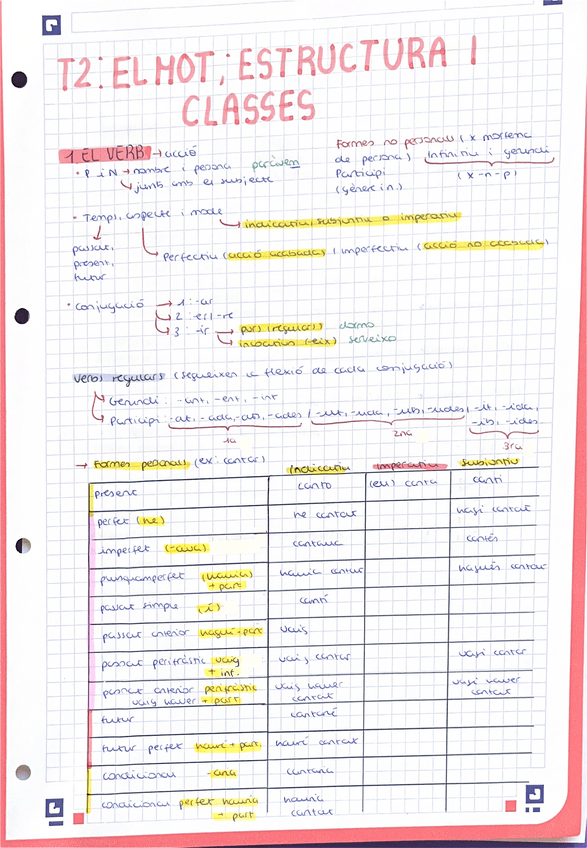 T2: EL MOT, ESTRUCTURA I
CLASSES
1. EL VERB → acció
· P i N → nombre i persona pariem
↳ junts amb el subjecte
Formes no personals (x morfema
de persona) Infinitiu i gerundi
Participi (x-n-p)
(gènere i n.)
· Temps, aspecte i mode
↳ indicatiu, subjuntiu o imperatiu
passat,
present,
futur
↳ Perfectiu (acció acabada) / imperfectiu (acció no acabada)
· Conjugació → 1: -ar
↳ 2: -er/-re
↳ 3: -ir → purs (regulars) dormo
↳ incoatius (-eix) serveixo
Verbs regulars (segueixen la flexió de cada conjugació)
↳ Gerundi: -ant, -ent, -int
↳ Participi: -at, -ada, -ats, -ades / -ut, -uda, -uts, -udes / -it, -ida,
-its, -ides
1a 2na 3ra
→ Formes personals (ex: cantar) Indicatiu Imperatiu Subjuntiu
present canto (ell) canta canti
perfet (he) he cantat hagi cantat
imperfet (-ava) cantava cantés
plusquamperfet (havia) + part havia cantat hagués cantat
passat simple (í) cantí
passat anterior haguí + part
passat perifràstic vaig + inf. vaig cantar vagi cantar
passat anterior perifràstic vaig haver + part. vaig haver cantat vagi haver cantat
futur cantaré
futur perfet hauré + part. hauré cantat
condicional -aria cantaria
condicional perfet hauria + part hauria cantat